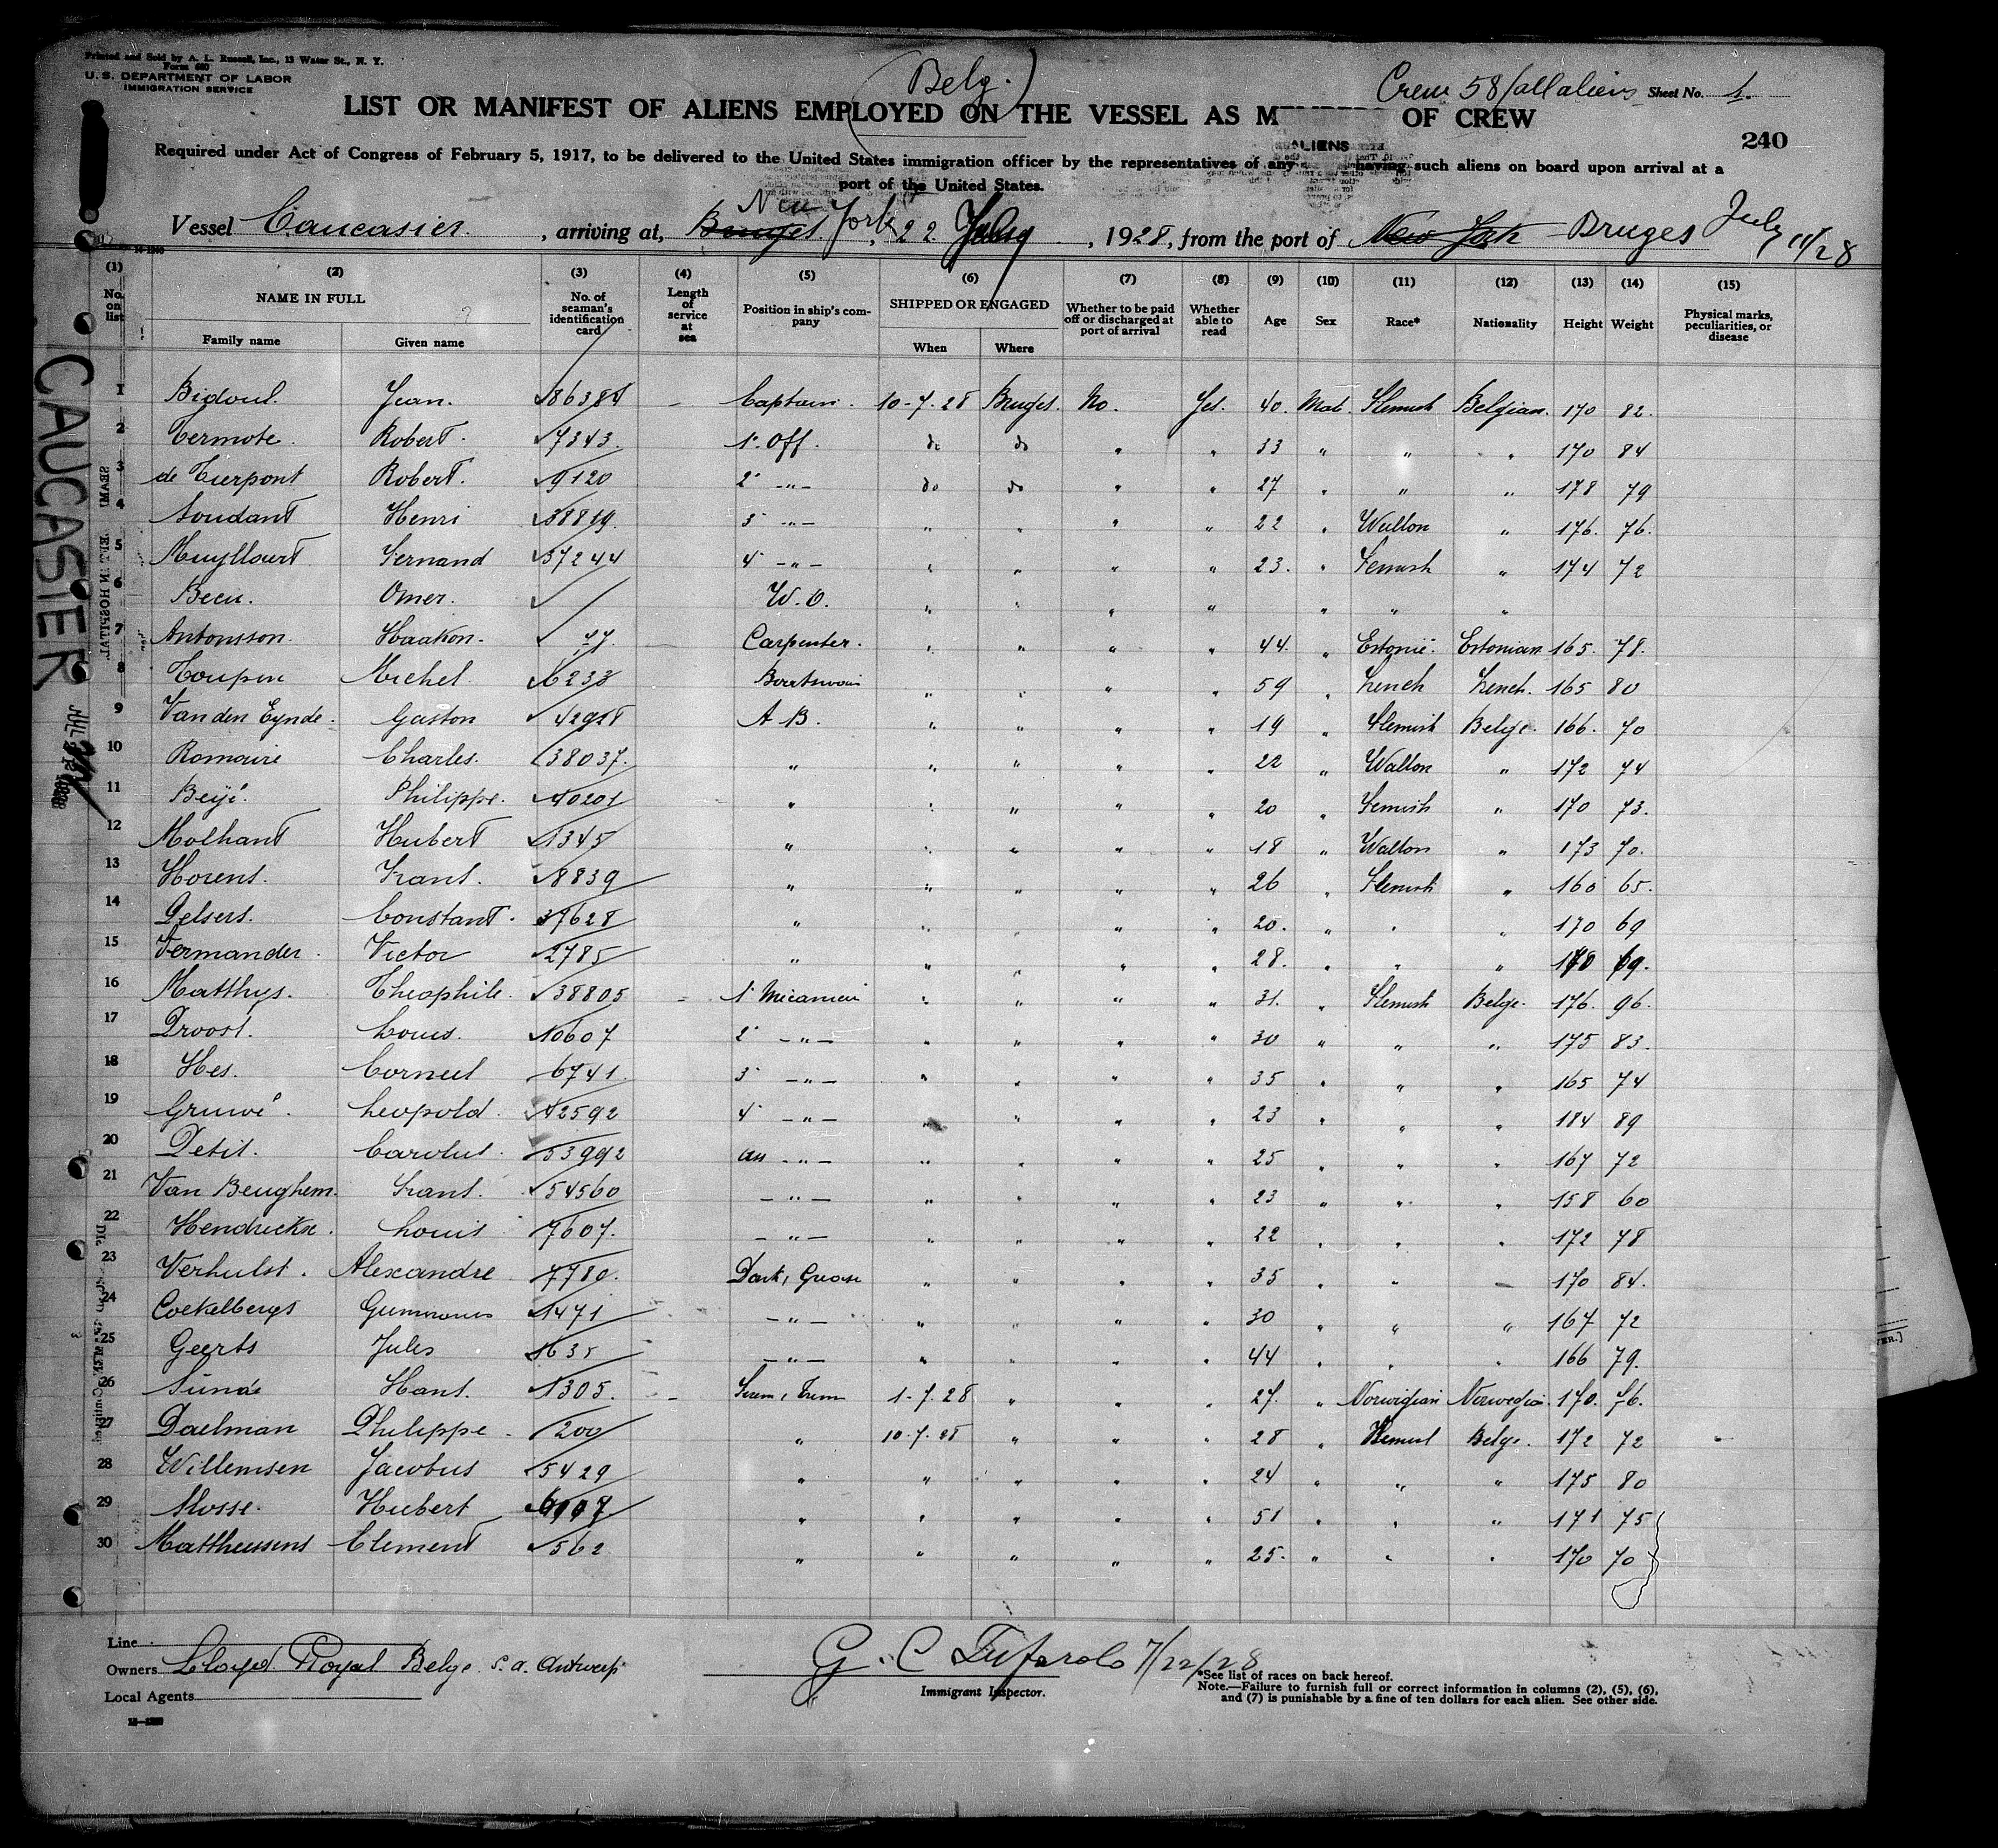 Printed and Sold by A. L. Russell, Inc., 13 Water St., N. Y.
Form 680
U. S. DEPARTMENT OF LABOR
IMMIGRATION SERVICE
(Belg.)
Crew 58/all aliens Sheet No. 1.
LIST OR MANIFEST OF ALIENS EMPLOYED ON THE VESSEL AS M OF CREW
240
ALIENS
Required under Act of Congress of February 5, 1917, to be delivered to the United States immigration officer by the representatives of any having such aliens on board upon arrival at a
port of the United States.
Vessel Caucasier, arriving at, Bruges New York, 22 July, 1928, from the port of New York Bruges July 11/28
(1) (2) (3) (4) (5) (6) (7) (8) (9) (10) (11) (12) (13) (14) (15)
No. on list NAME IN FULL Family name Given name No. of seaman's identification card Length of service at sea Position in ship's company SHIPPED OR ENGAGED When Where Whether to be paid off or discharged at port of arrival Whether able to read Age Sex Race* Nationality Height Weight Physical marks, peculiarities, or disease
1 Bidoul. Jean. 86388 - Captain. 10-7.28 Bruges. No. Yes. 40. Flemish Belgian. 170 82.
2 Termote. Robert. 7343. 1° Off. do do " " 33 " " " 170 84
3 de Tierpont Robert. 9120 2° -"- do do " " 27 " " " 178 79
4 Soudant Henri 38819. 3° -"- " " " " 22 " Wallon " 176. 76.
5 Muyllaert Fernand 37244 4° -"- " " " " 23. " Flemish " 174 72
6 Becu. Omer. W. O. " " " " " " "
7 Antonsson. Haakon. Carpenter. " " " " 44. " Estonie. Estonian 165. 78.
8 Toupin Michel 6233 Boatswain " " " " 59 " French French. 165 80
9 Van den Eynde. Gaston 42918 A B. " " " " 19 " Flemish Belge. 166. 70
10 Romaire Charles. 38037. " " " " " 22 " Wallon " 172 74
11 Beyé. Philippe. 40201 " " " " " 20 " Flemish " 170 73.
12 Molhant Hubert 1345 " " " " " 18 " Wallon " 173 70.
13 Horens. Frans. 8839 " " " " " 26 " Flemish " 160 65.
14 Gelsers. Constant. 37628 " " " " " 20. " " " 170 69
15 Vermander. Victor 2785 " " " " " 28. " " " 170 69.
16 Matthys. Theophile. 38805 - 1° Mecanicien " " " " 31. " Flemish Belge. 176. 96.
17 Droost. Louis. 10607 2° -"- " " " " 30 " " " 175 83.
18 Hes. Corneel 6741. 3° -"- " " " " 35 " " " 165 74
19 Gruwé. Leopold. 42592 4° -"- " " " " 23 " " " 184 89
20 Petit. Carolus. 53992 -"- " " " " 25 " " " 167 72
21 Van Beughem. Frans. 54560 -"- " " " " 23 " " " 158 60
22 Hendrickx. Louis 7607. -"- " " " " 22 " " " 172 78
23 Verhulst. Alexandre 7780. " " " " 35 " " " 170 84.
24 Coekelbergs Gummarus 1471 -"- " " " " 30 " " " 167 72
25 Geerts Jules 1635 -"- " " " " 44 " " " 166 79.
26 Sunde Hans. 1305. - 1-7.28 " " " 27. " Norwigian Norwegian. 170. 76.
27 Daelman Philippe. 200 " 10-7.28 " " " 28 " Flemish Belge. 172 72
28 Willemsen Jacobus 5429 " " " " " 24 " " " 175 80
29 Mosse. Hubert " " " " " 51 " " " 171 75
30 Mattheussens Clement 562 " " " " " 25. " " " 170 70
CAUCASIER
Line
Owners Lloyd Royal Belge s. a. Antwerp
Local Agents
G. C. Tufarolo 7/22/28
Immigrant Inspector.
*See list of races on back hereof.
Note.—Failure to furnish full or correct information in columns (2), (5), (6),
and (7) is punishable by a fine of ten dollars for each alien. See other side.